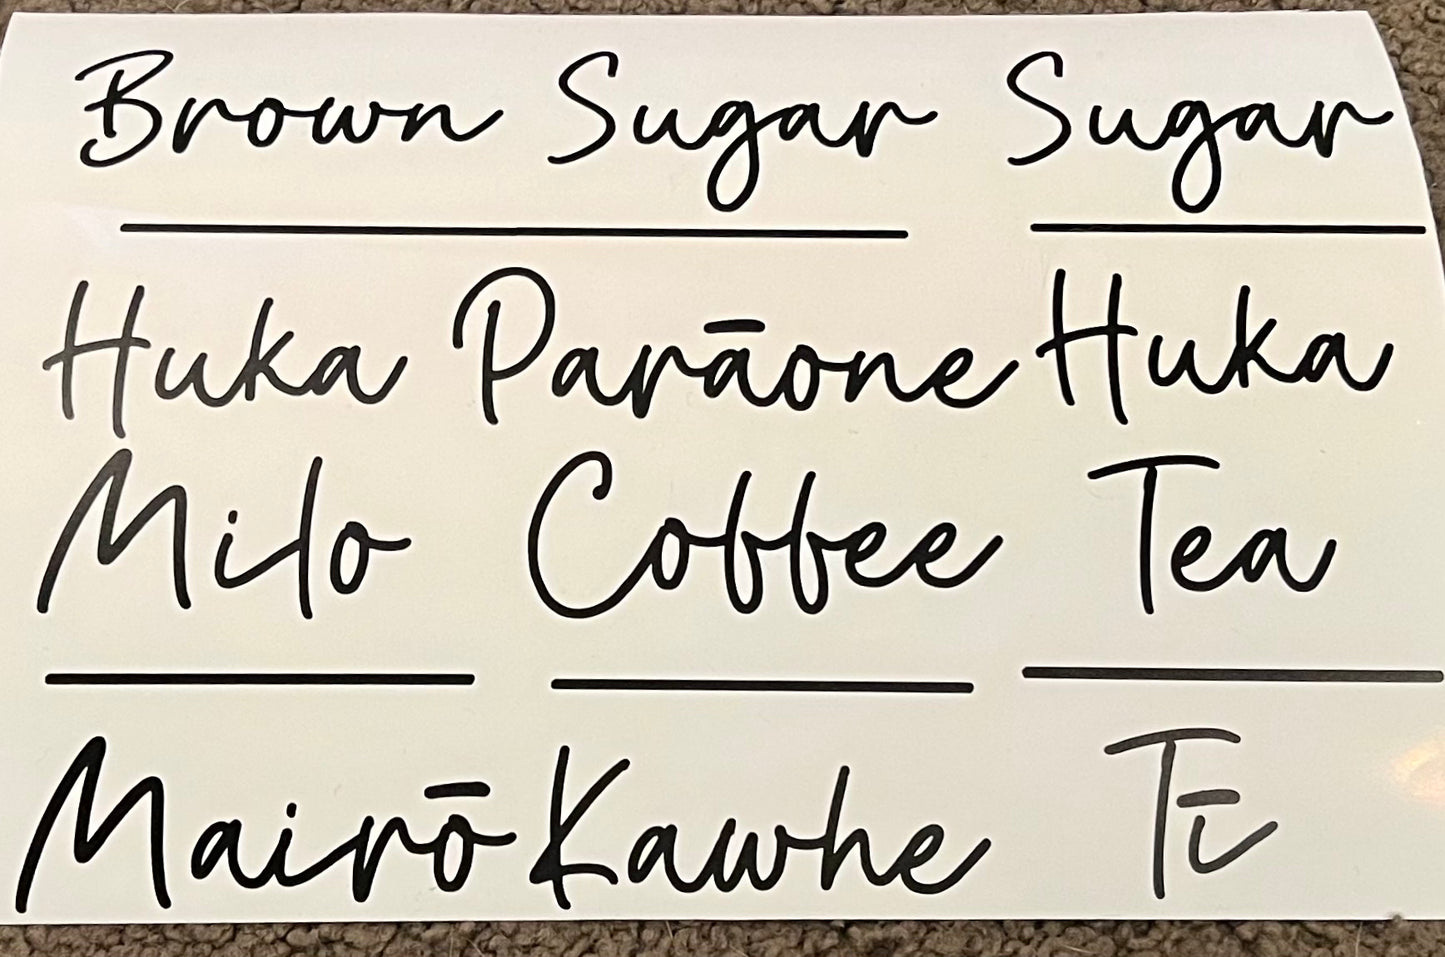 Brown Sugar Sugar
Huka Parāone Huka
Milo Coffee Tea
Mairō Kawhe Tī